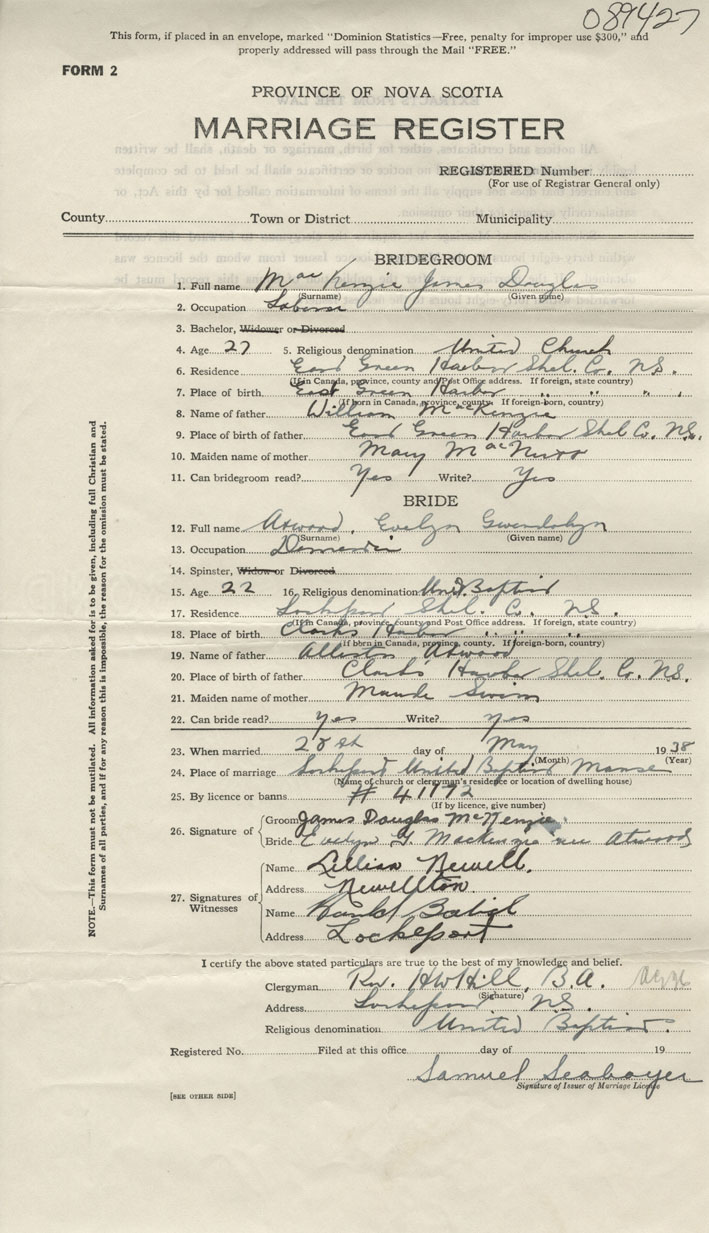 089427
This form, if placed in an envelope, marked "Dominion Statistics—Free, penalty for improper use $300," and
properly addressed will pass through the Mail "FREE."
FORM 2
PROVINCE OF NOVA SCOTIA
MARRIAGE REGISTER
REGISTERED Number
(For use of Registrar General only)
County Town or District Municipality
BRIDEGROOM
1. Full name MacKenzie James Douglas
(Surname) (Given name)
2. Occupation Laborer
3. Bachelor, Widower or Divorced
4. Age 27 5. Religious denomination United Church
6. Residence East Green Harbor Shel. Co. N.S.
(If in Canada, province, county and Post Office address. If foreign, state country)
7. Place of birth East Green Harbor " " " "
(If born in Canada, province, county. If foreign-born, country)
8. Name of father William MacKenzie
9. Place of birth of father East Green Harbor Shel Co. N.S.
10. Maiden name of mother Mary
11. Can bridegroom read? Yes Write? Yes
BRIDE
12. Full name Atwood, Evelyn Gwendolyn
(Surname) (Given name)
13. Occupation Domestic
14. Spinster, Widow or Divorced
15. Age 22 16. Religious denomination Unt. Baptist
17. Residence Lockeport Shel. Co. N.S.
(If in Canada, province, county and Post Office address. If foreign, state country)
18. Place of birth Clarks Harbor " " "
(If born in Canada, province, county. If foreign-born, country)
19. Name of father Atwood
20. Place of birth of father Clarks Harbor Shel. Co. N.S.
21. Maiden name of mother Maude Swim
22. Can bride read? yes Write? yes
23. When married 28th day of May 1938
(Month) (Year)
24. Place of marriage Lockeport United Baptist Manse
(Name of church or clergyman's residence or location of dwelling house)
25. By licence or banns # 41192
(If by licence, give number)
26. Signature of Groom James Douglas McKenzie
Bride Evelyn G. Mackenzie nee Atwood
27. Signatures of Witnesses
Name Lillian Newell.
Address Newellton
Name
Address Lockeport
I certify the above stated particulars are true to the best of my knowledge and belief.
Clergyman Rev. HW Hill, B.A.
(Signature)
Address Lockeport N.S.
Religious denomination United Baptist.
Registered No. Filed at this office day of 19
Samuel Seaboyer
Signature of Issuer of Marriage License
[SEE OTHER SIDE]
NOTE.—This form must not be mutilated. All information asked for is to be given, including full Christian and
Surnames of all parties, and if for any reason this is impossible, the reason for the omission must be stated.